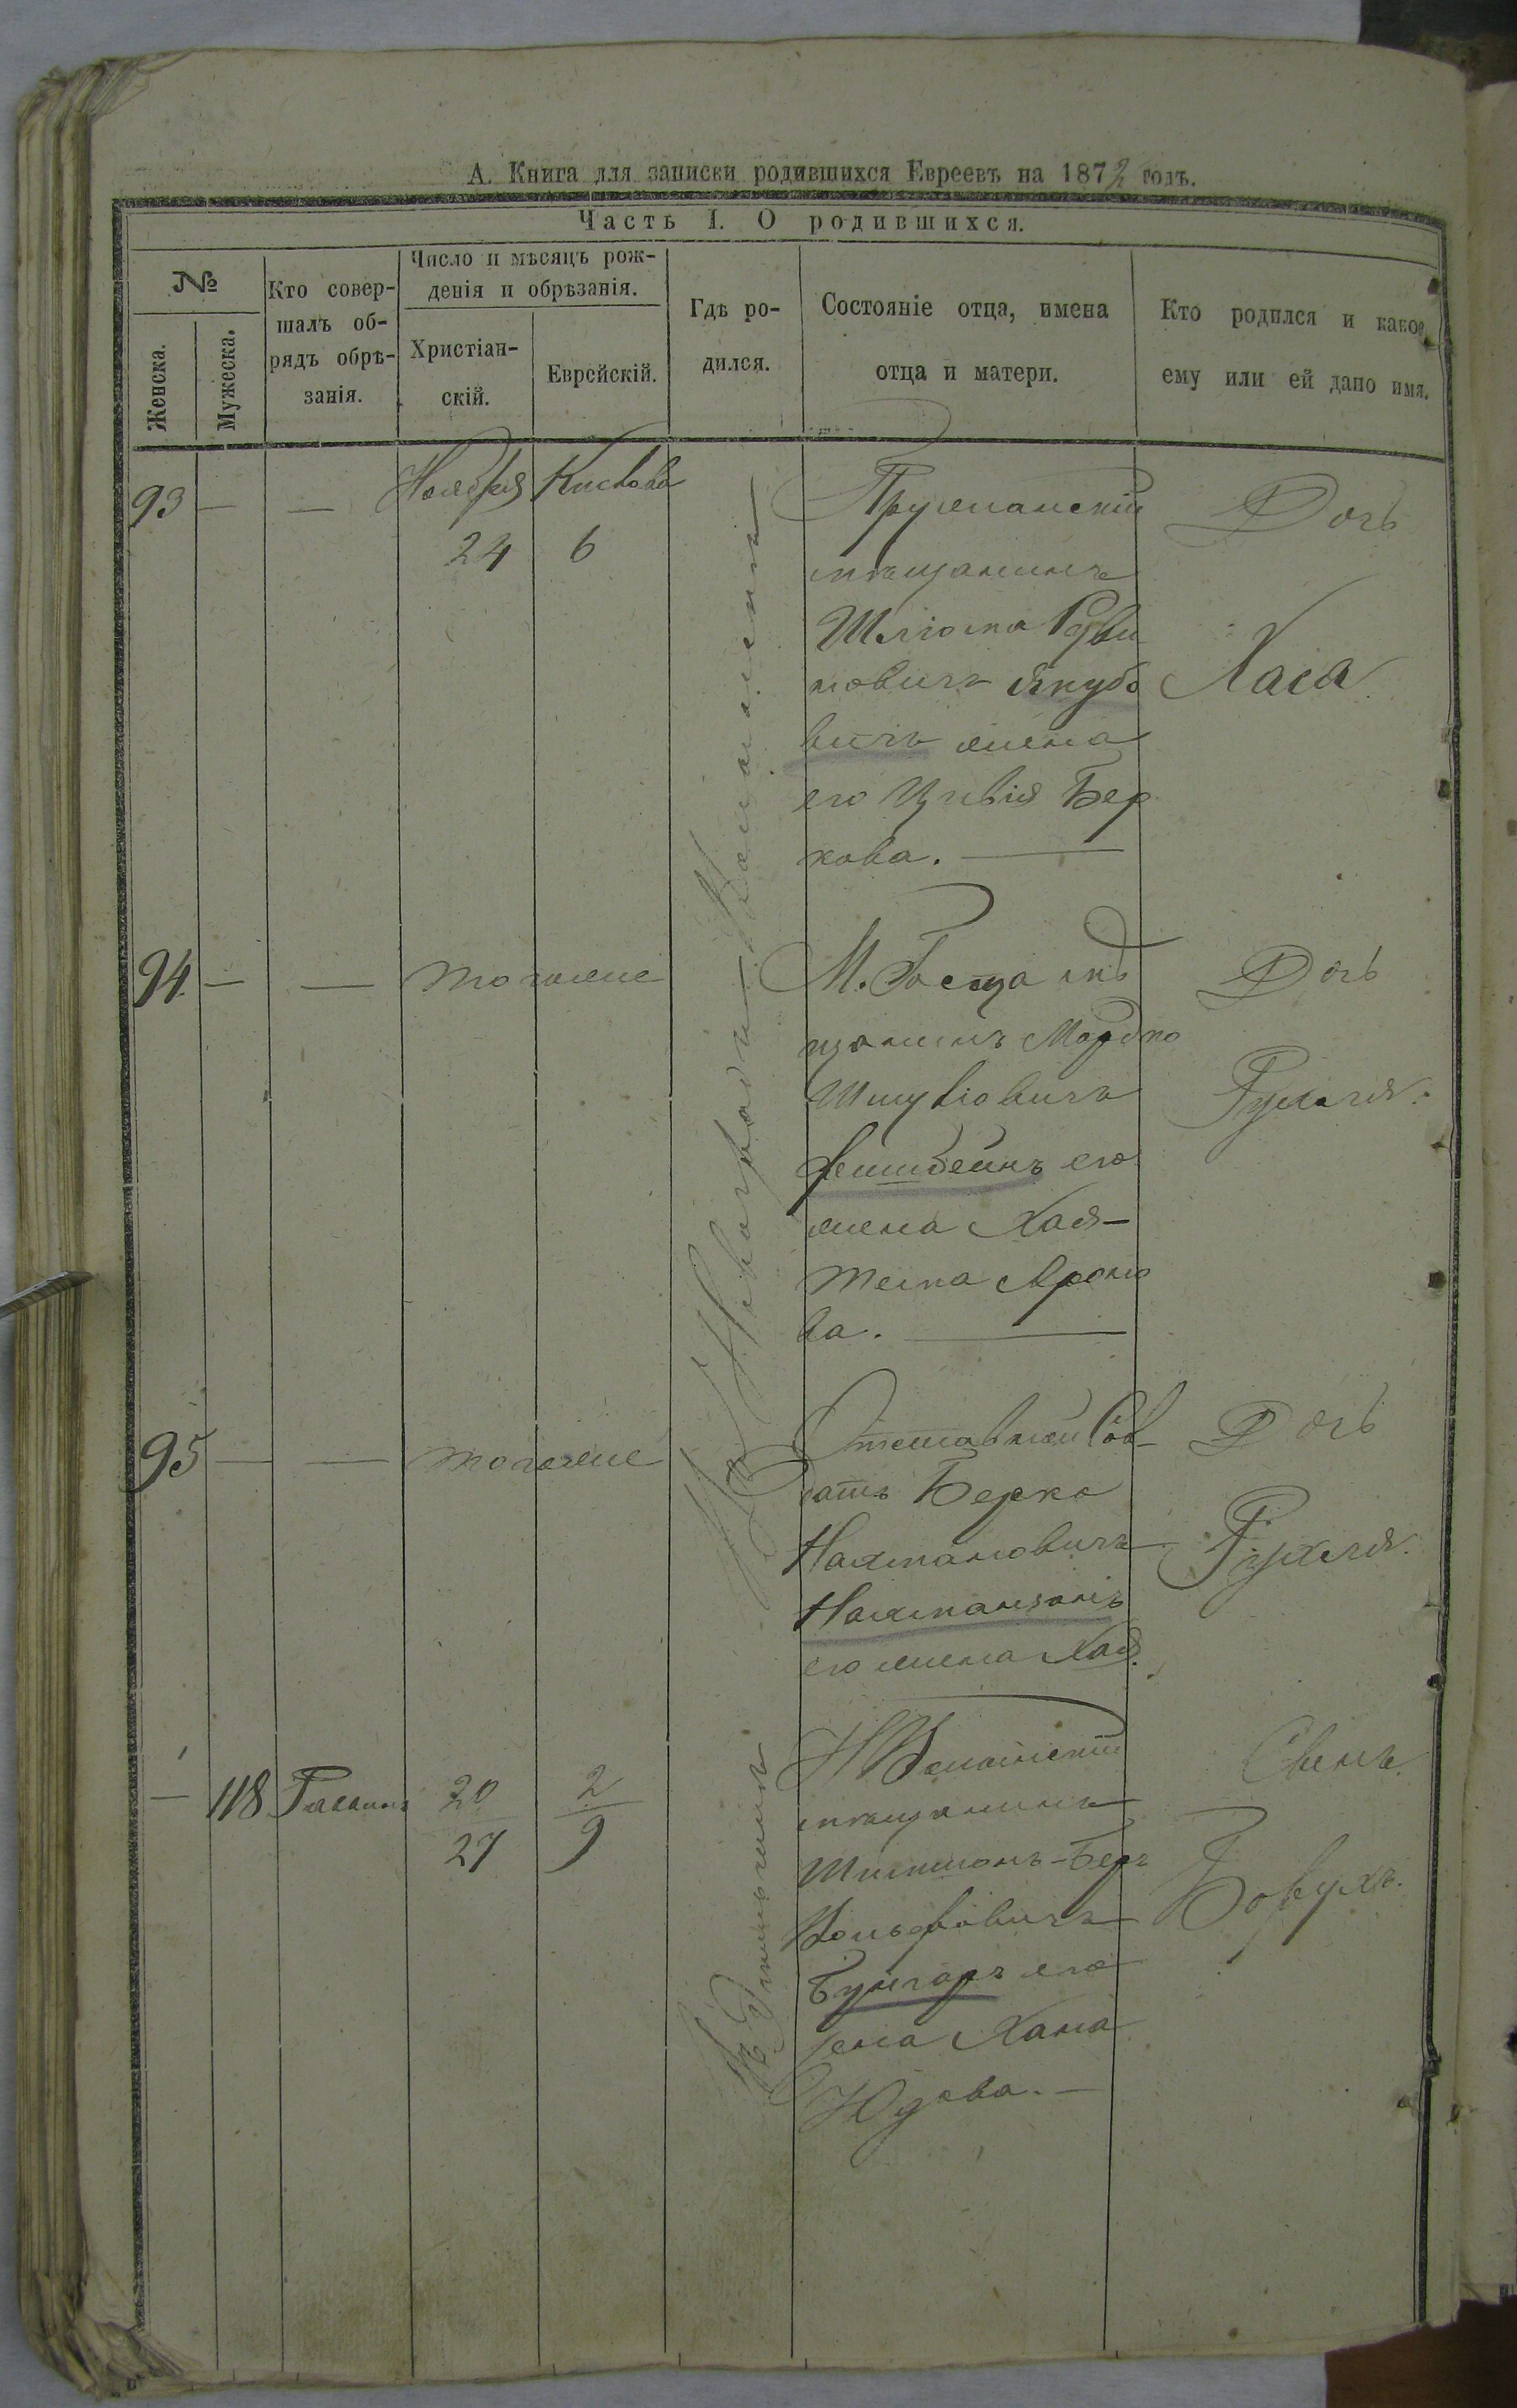 А. Книга для записки родившихся Евреевъ на 1872 годъ.
Часть I. О родившихся.
№
Женска.
Мужеска.
Кто совер-
шалъ об-
рядъ обрѣ-
занія.
Число и мѣсяцъ рож-
денія и обрѣзанія.
Христіан-
скій.
Еврейскій.
Гдѣ ро-
дился.
Состояніе отца, имена
отца и матери.
Кто родился и какое
ему или ей дано имя.
93 — — Ноября Кислева
24 6
Пружанскій
мѣщанинъ
Шліома Руви
новичъ Якубо
вичъ жена
его Цивія Бер
кова. —
Дочь
Хася
94 — — тогоже
М. мѣ
щанинъ Мордко
Шмуйловичъ
его
жена Хая-
Ароно
ва. —
Дочь
Рухля.
95 — — тогоже
Отставной Сол
датъ Берко
Нахмановичъ
Нахмансонъ
его жена Хая.
Дочь
Рухля.
— 118 20 2
27 9
мѣщанинъ
Шимшонъ-Беръ
Вольфовичъ
его
жена Хана
Юдова. —
Сынъ
Борухъ.